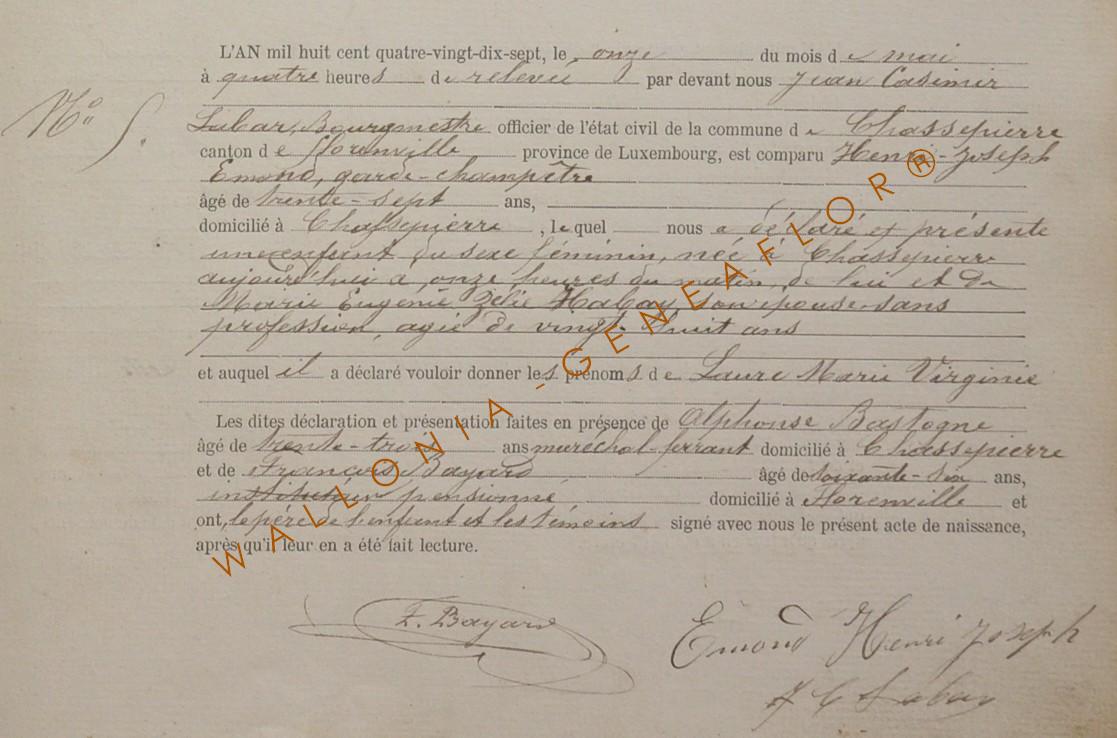 L'AN mil huit cent quatre-vingt-dix-sept, le onze du mois de mai
à quatre heures de relevée par devant nous Jean Casimir
N° 5.
Labar, Bourgmestre officier de l'état civil de la commune de Chassepierre
canton de Florenville province de Luxembourg, est comparu Henri-Joseph
Emond, garde-champêtre
âgé de trente-sept ans,
domicilié à Chassepierre, lequel nous a déclaré et présenté
une enfant du sexe féminin, née à Chassepierre
aujourd'hui à onze heures du matin, de lui et de
Marie Eugénie Zélie Habay, son épouse sans
profession, agée de vingt-huit ans
et auquel il a déclaré vouloir donner les prénoms de Laure Marie Virginie
Les dites déclaration et présentation faites en présence de Alphonse Bastogne
âgé de trente-trois ans maréchal-ferrant domicilié à Chassepierre
et de François Bayard âgé de soixante-six ans,
instituteur pensionné domicilié à Florenville et
ont, le père de l'enfant et les témoins signé avec nous le présent acte de naissance,
après qu'il leur en a été fait lecture.
F. Bayard
Emond Henri Joseph
J C Labar
WALLONIA - GENEAFLOR®